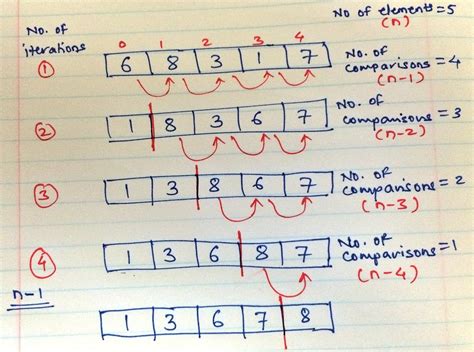 No of elements = 5
(n)
No. of
iterations
0 1 2 3 4
① 6 8 3 1 7
No. of
comparisons = 4
(n-1)
② 1 8 3 6 7
No. of
comparisons = 3
(n-2)
③ 1 3 8 6 7
No. of
comparisons = 2
(n-3)
④ 1 3 6 8 7
No. of
comparisons = 1
(n-4)
n-1
1 3 6 7 8